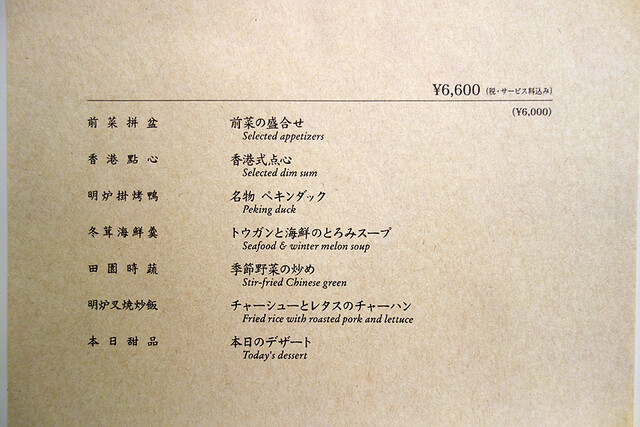 ¥6,600 (税・サービス料込み)
(¥6,000)
前菜拼盆 前菜の盛合せ
Selected appetizers
香港點心 香港式点心
Selected dim sum
明炉掛烤鴨 名物 ペキンダック
Peking duck
冬茸海鮮羹 トウガンと海鮮のとろみスープ
Seafood & winter melon soup
田園時蔬 季節野菜の炒め
Stir-fried Chinese green
明炉叉焼炒飯 チャーシューとレタスのチャーハン
Fried rice with roasted pork and lettuce
本日甜品 本日のデザート
Today's dessert